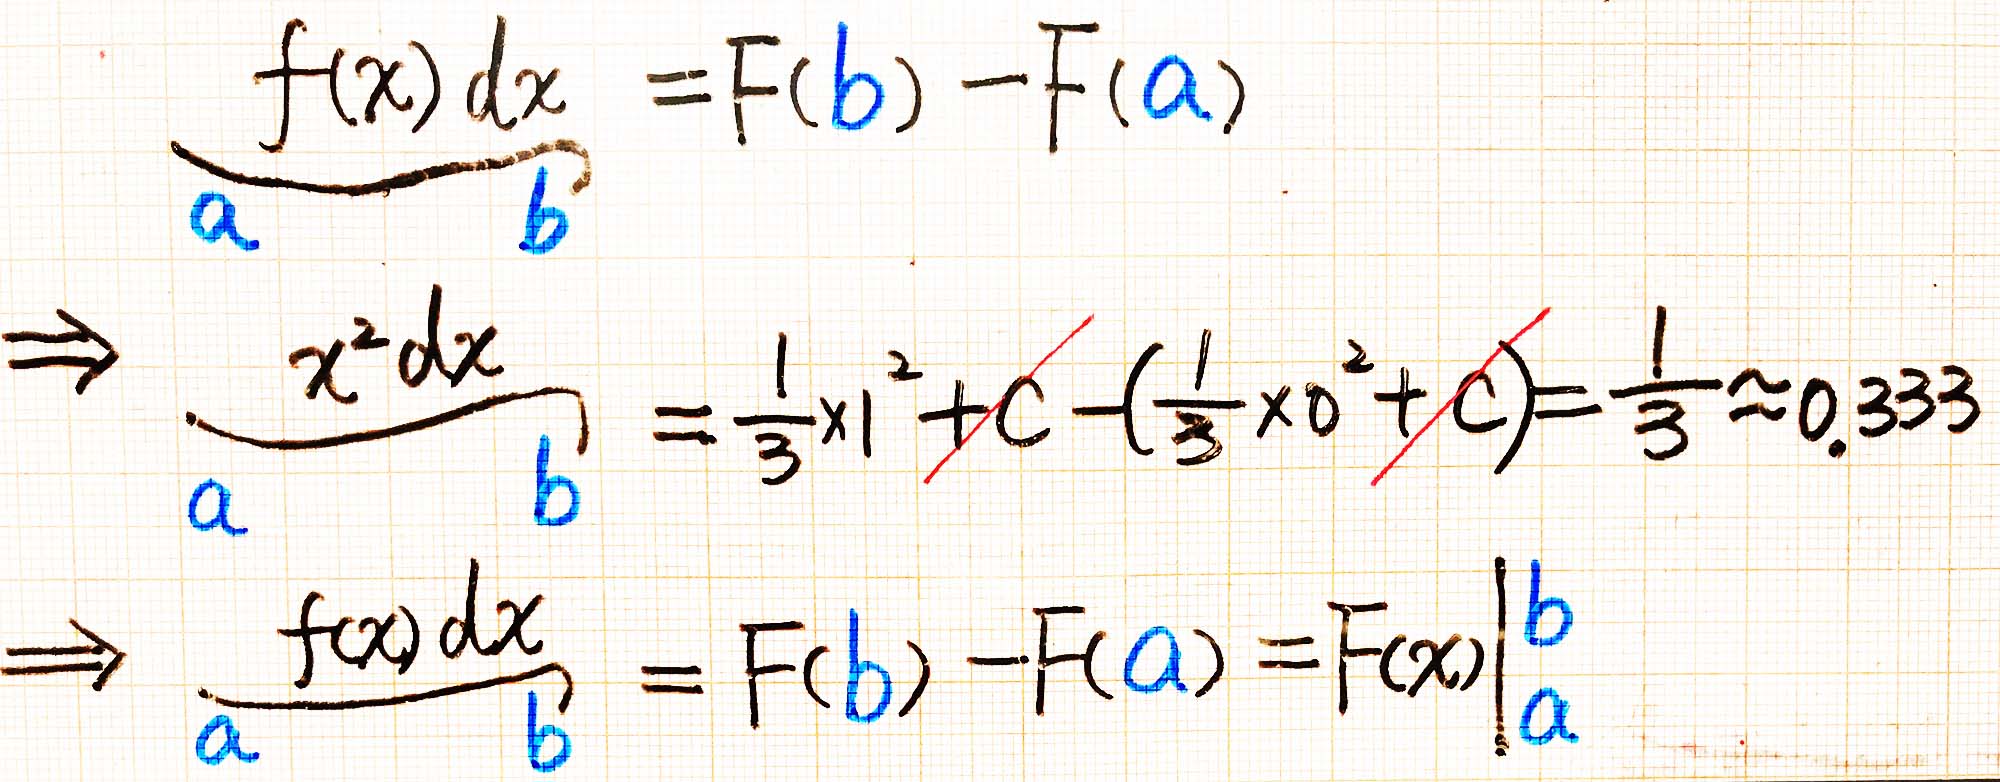 f(x) dx = F(b) - F(a)
a b
⇒ x² dx = 1/3 × 1² + C - (1/3 × 0² + C) = 1/3 ≈ 0.333
a b
⇒ f(x) dx = F(b) - F(a) = F(x) | b a
a b